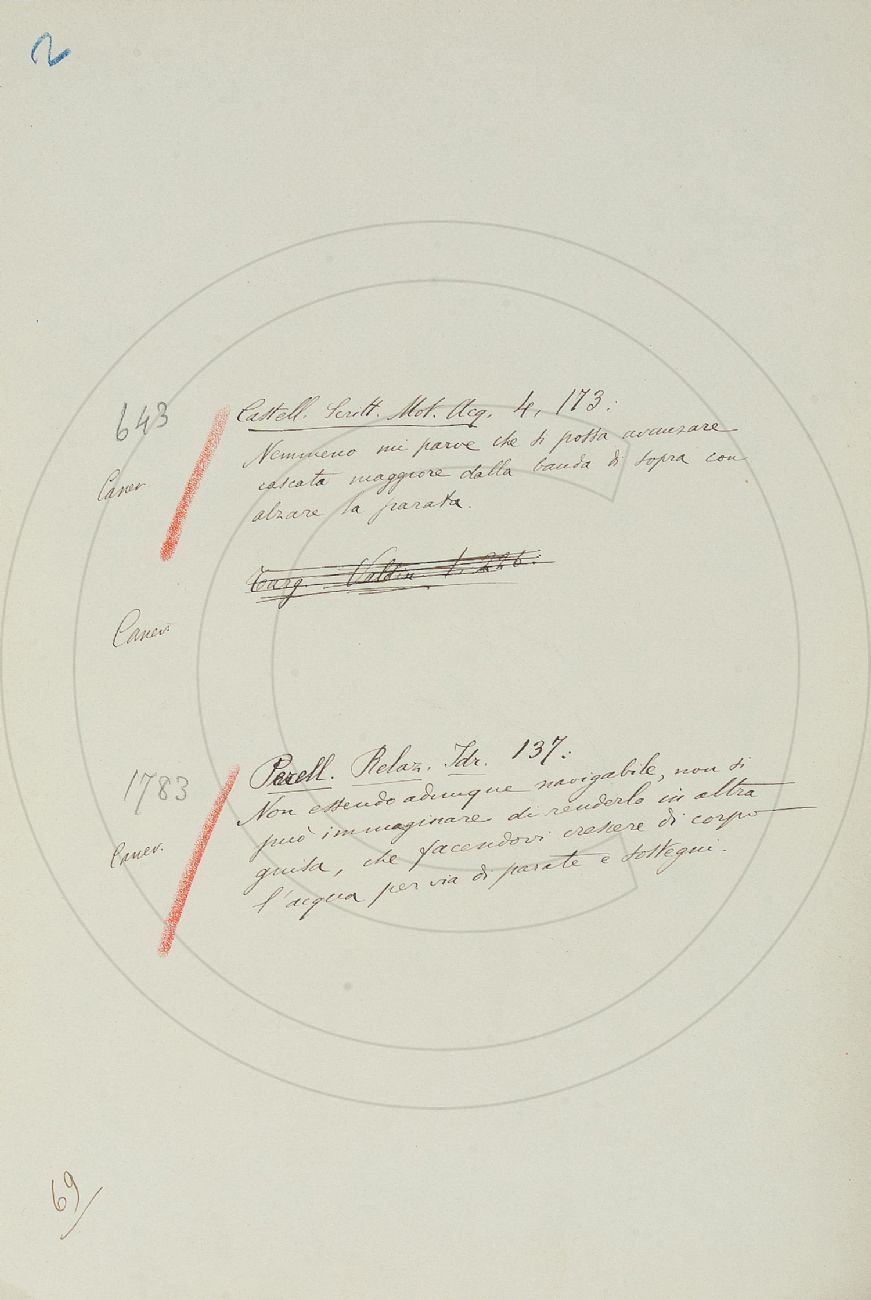 2
643
Castell. Scritt. Mot. Acq. 4, 173:
Nemmeno mi parve che si possa avanzare
Canev.
cascata maggiore dalla banda di sopra con
alzare la parata.
Targ. Valdin. 1, 226:
Canev.
1783
Perell. Relaz. Idr. 137:
Non essendo adunque navigabile, non si
può immaginare di renderlo in altra
Canev.
guisa, che facendovi crescere di corpo
l'acqua per via di parate e sostegni.
69